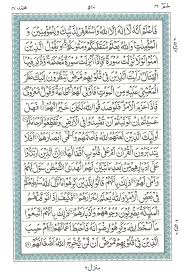 فَاعْلَمْ اَنَّهٗ لَاۤ اِلٰهَ اِلَّا اللّٰهُ وَاسْتَغْفِرْ لِذَنْۢبِكَ وَلِلْمُؤْمِنِيْنَ
وَالْمُؤْمِنٰتِ وَاللّٰهُ يَعْلَمُ مُتَقَلَّبَكُمْ وَمَثْوٰىكُمْ وَيَقُوْلُ الَّذِيْنَ
اٰمَنُوْا لَوْلَا نُزِّلَتْ سُوْرَةٌ فَاِذَاۤ اُنْزِلَتْ سُوْرَةٌ مُّحْكَمَةٌ وَّذُكِرَ
فِيْهَا الْقِتَالُ رَاَيْتَ الَّذِيْنَ فِيْ قُلُوْبِهِمْ مَّرَضٌ يَّنْظُرُوْنَ اِلَيْكَ
نَظَرَ الْمَغْشِيِّ عَلَيْهِ مِنَ الْمَوْتِ فَاَوْلٰى لَهُمْ طَاعَةٌ وَّقَوْلٌ
مَّعْرُوْفٌ فَاِذَا عَزَمَ الْاَمْرُ فَلَوْ صَدَقُوا اللّٰهَ لَكَانَ خَيْرًا لَّهُمْ فَهَلْ
عَسَيْتُمْ اِنْ تَوَلَّيْتُمْ اَنْ تُفْسِدُوْا فِي الْاَرْضِ وَتُقَطِّعُوْۤا اَرْحَامَكُمْ
اُولٰٓئِكَ الَّذِيْنَ لَعَنَهُمُ اللّٰهُ فَاَصَمَّهُمْ وَاَعْمٰۤى اَبْصَارَهُمْ اَفَلَا
يَتَدَبَّرُوْنَ الْقُرْاٰنَ اَمْ عَلٰى قُلُوْبٍ اَقْفَالُهَا اِنَّ الَّذِيْنَ ارْتَدُّوْا
عَلٰۤى اَدْبَارِهِمْ مِّنْۢ بَعْدِ مَا تَبَيَّنَ لَهُمُ الْهُدَى الشَّيْطٰنُ سَوَّلَ لَهُمْ
وَاَمْلٰى لَهُمْ ذٰلِكَ بِاَنَّهُمْ قَالُوْا لِلَّذِيْنَ كَرِهُوْا مَا نَزَّلَ اللّٰهُ
سَنُطِيْعُكُمْ فِيْ بَعْضِ الْاَمْرِ وَاللّٰهُ يَعْلَمُ اِسْرَارَهُمْ فَكَيْفَ اِذَا تَوَفَّتْهُمُ
الْمَلٰٓئِكَةُ يَضْرِبُوْنَ وُجُوْهَهُمْ وَاَدْبَارَهُمْ ذٰلِكَ بِاَنَّهُمُ اتَّبَعُوْا
مَاۤ اَسْخَطَ اللّٰهَ وَكَرِهُوْا رِضْوَانَهٗ فَاَحْبَطَ اَعْمَالَهُمْ اَمْ حَسِبَ
الَّذِيْنَ فِيْ قُلُوْبِهِمْ مَّرَضٌ اَنْ لَّنْ يُّخْرِجَ اللّٰهُ اَضْغَانَهُمْ